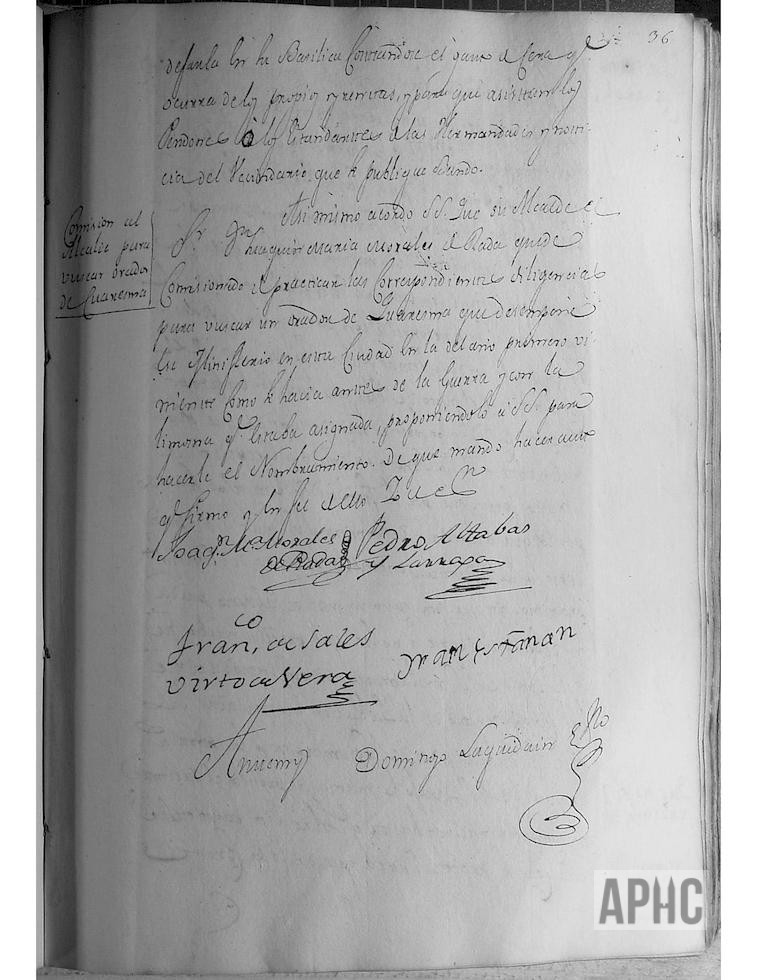 36
dejarla en la Basilica Contandose el gasto de Cera q.
ocurra de los propios y rentas, y para que asistan los
Pendones o los Estandartes de las Hermandades y noti-
cia del Vecindario, que se publique Bando.
Comision al
Alcalde para
vuscar orador
de Cuaresma
Asi mismo acordo S.S. Que su Alcalde el
S.r Joaquin Maria Morales de Rada quede
Comisionado de practicar las Correspondientes diligencias
para vuscar un orador de Cuaresma que desempeñe
ese Ministerio en esta Ciudad en la del año primero vi-
niente como se hacia antes de la Guerra y con la
limosna q.e estaba asignada, proponiendolo a S.S. para
hacerle el Nombramiento. De que mando hacer auto
q.e firmo y en fee de ello Yo el
Joaq.n M.a Morales
de Rada
Pedro Altabas
y Larraga
Fran.co de Sales
Virto de Vera
Juan Estanan
Antemi Domingo Laquidain Ess.no
APHC